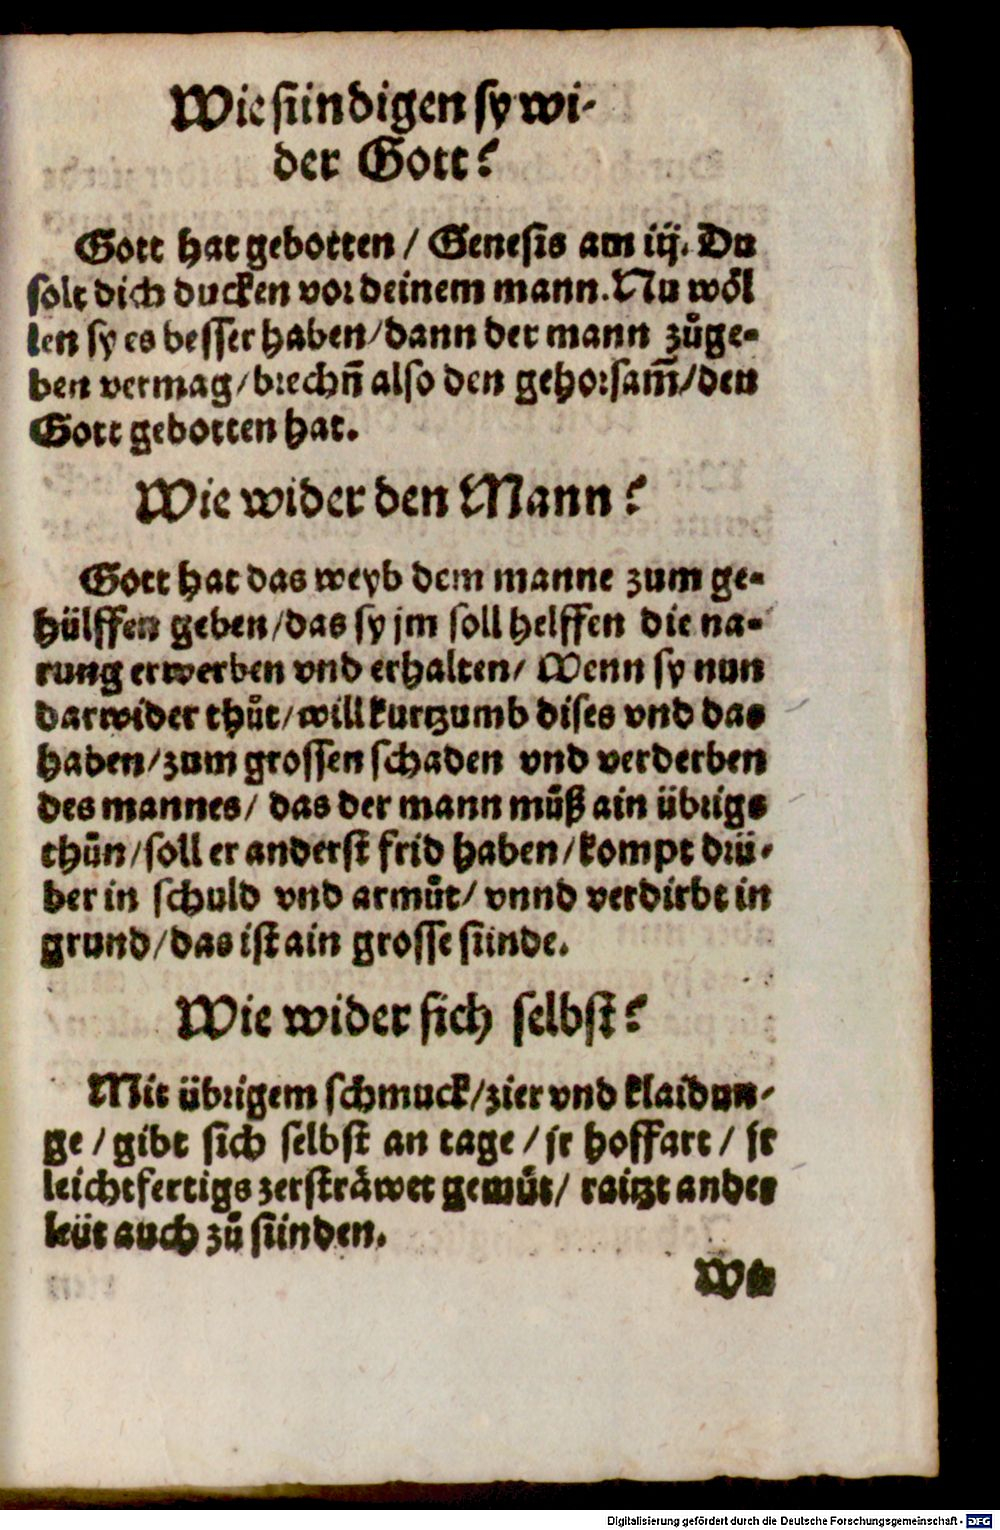 Wie sündigen sy wi-
der Gott?
Gott hat gebotten / Genesis am iij. Du
solt dich ducken vor deinem mann. Nu wöl
len sy es besser haben / dann der mann zůge-
ben vermag / brechñ also den gehorsam̃ / den
Gott gebotten hat.
Wie wider den Mann?
Gott hat das weyb dem manne zum ge-
hülffen geben / das sy jm soll helffen die na-
rung erwerben vnd erhalten / Wenn sy nun
darwider thůt / will kurtzumb dises vnd das
haben / zum grossen schaden vnd verderben
des mannes / das der mann můß ain übrigs
thůn / soll er anderst frid haben / kompt drü-
ber in schuld vnd armůt / vnnd verdirbt in
grund / das ist ain grosse sünde.
Wie wider sich selbst?
Mit übrigem schmuck / zier vnd klaidun-
ge / gibt sich selbst an tage / jr hoffart / jr
leichtfertigs zersträwet gemůt / raitzt ander
leüt auch zů sünden.
Digitalisierung gefördert durch die Deutsche Forschungsgemeinschaft - DFG